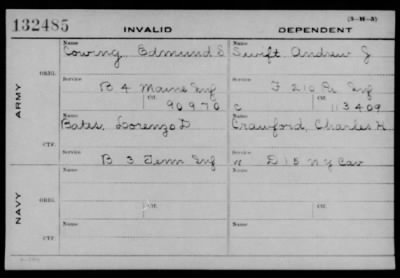 132485
INVALID
DEPENDENT
(3-M-A)
ARMY
ORIG.
Name
Cowing, Edmund S
Name
Swift Andrew J
Service
B 4 Maine Inf
Service
F 210 Pa Inf
Ctf.
90970
C
Ctf.
113409
CTF.
Name
Bates, Lorenzo D
Name
Crawford, Charles H
Service
B 3 Tenn Inf
Service
D 15 N Y Cav
NAVY
ORIG.
Name
Name
Service
Service
Ctf.
Ctf.
CTF.
Name
Name
Service
Service